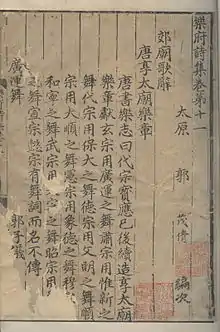 樂府詩集卷第十一
太原 郭 茂倩 編次
郊廟歌辭
唐享太廟樂章
唐書樂志曰代宗寶應已後續造享太廟
樂章獻玄宗用廣運之舞肅宗用惟新之
舞代宗用保大之舞德宗用文明之舞順
宗用大順之舞憲宗用象德之舞穆宗用
和寧之舞武宗用大定之舞昭宗用
之舞宣宗懿宗有舞詞而名不傳
廣運舞
郭子儀